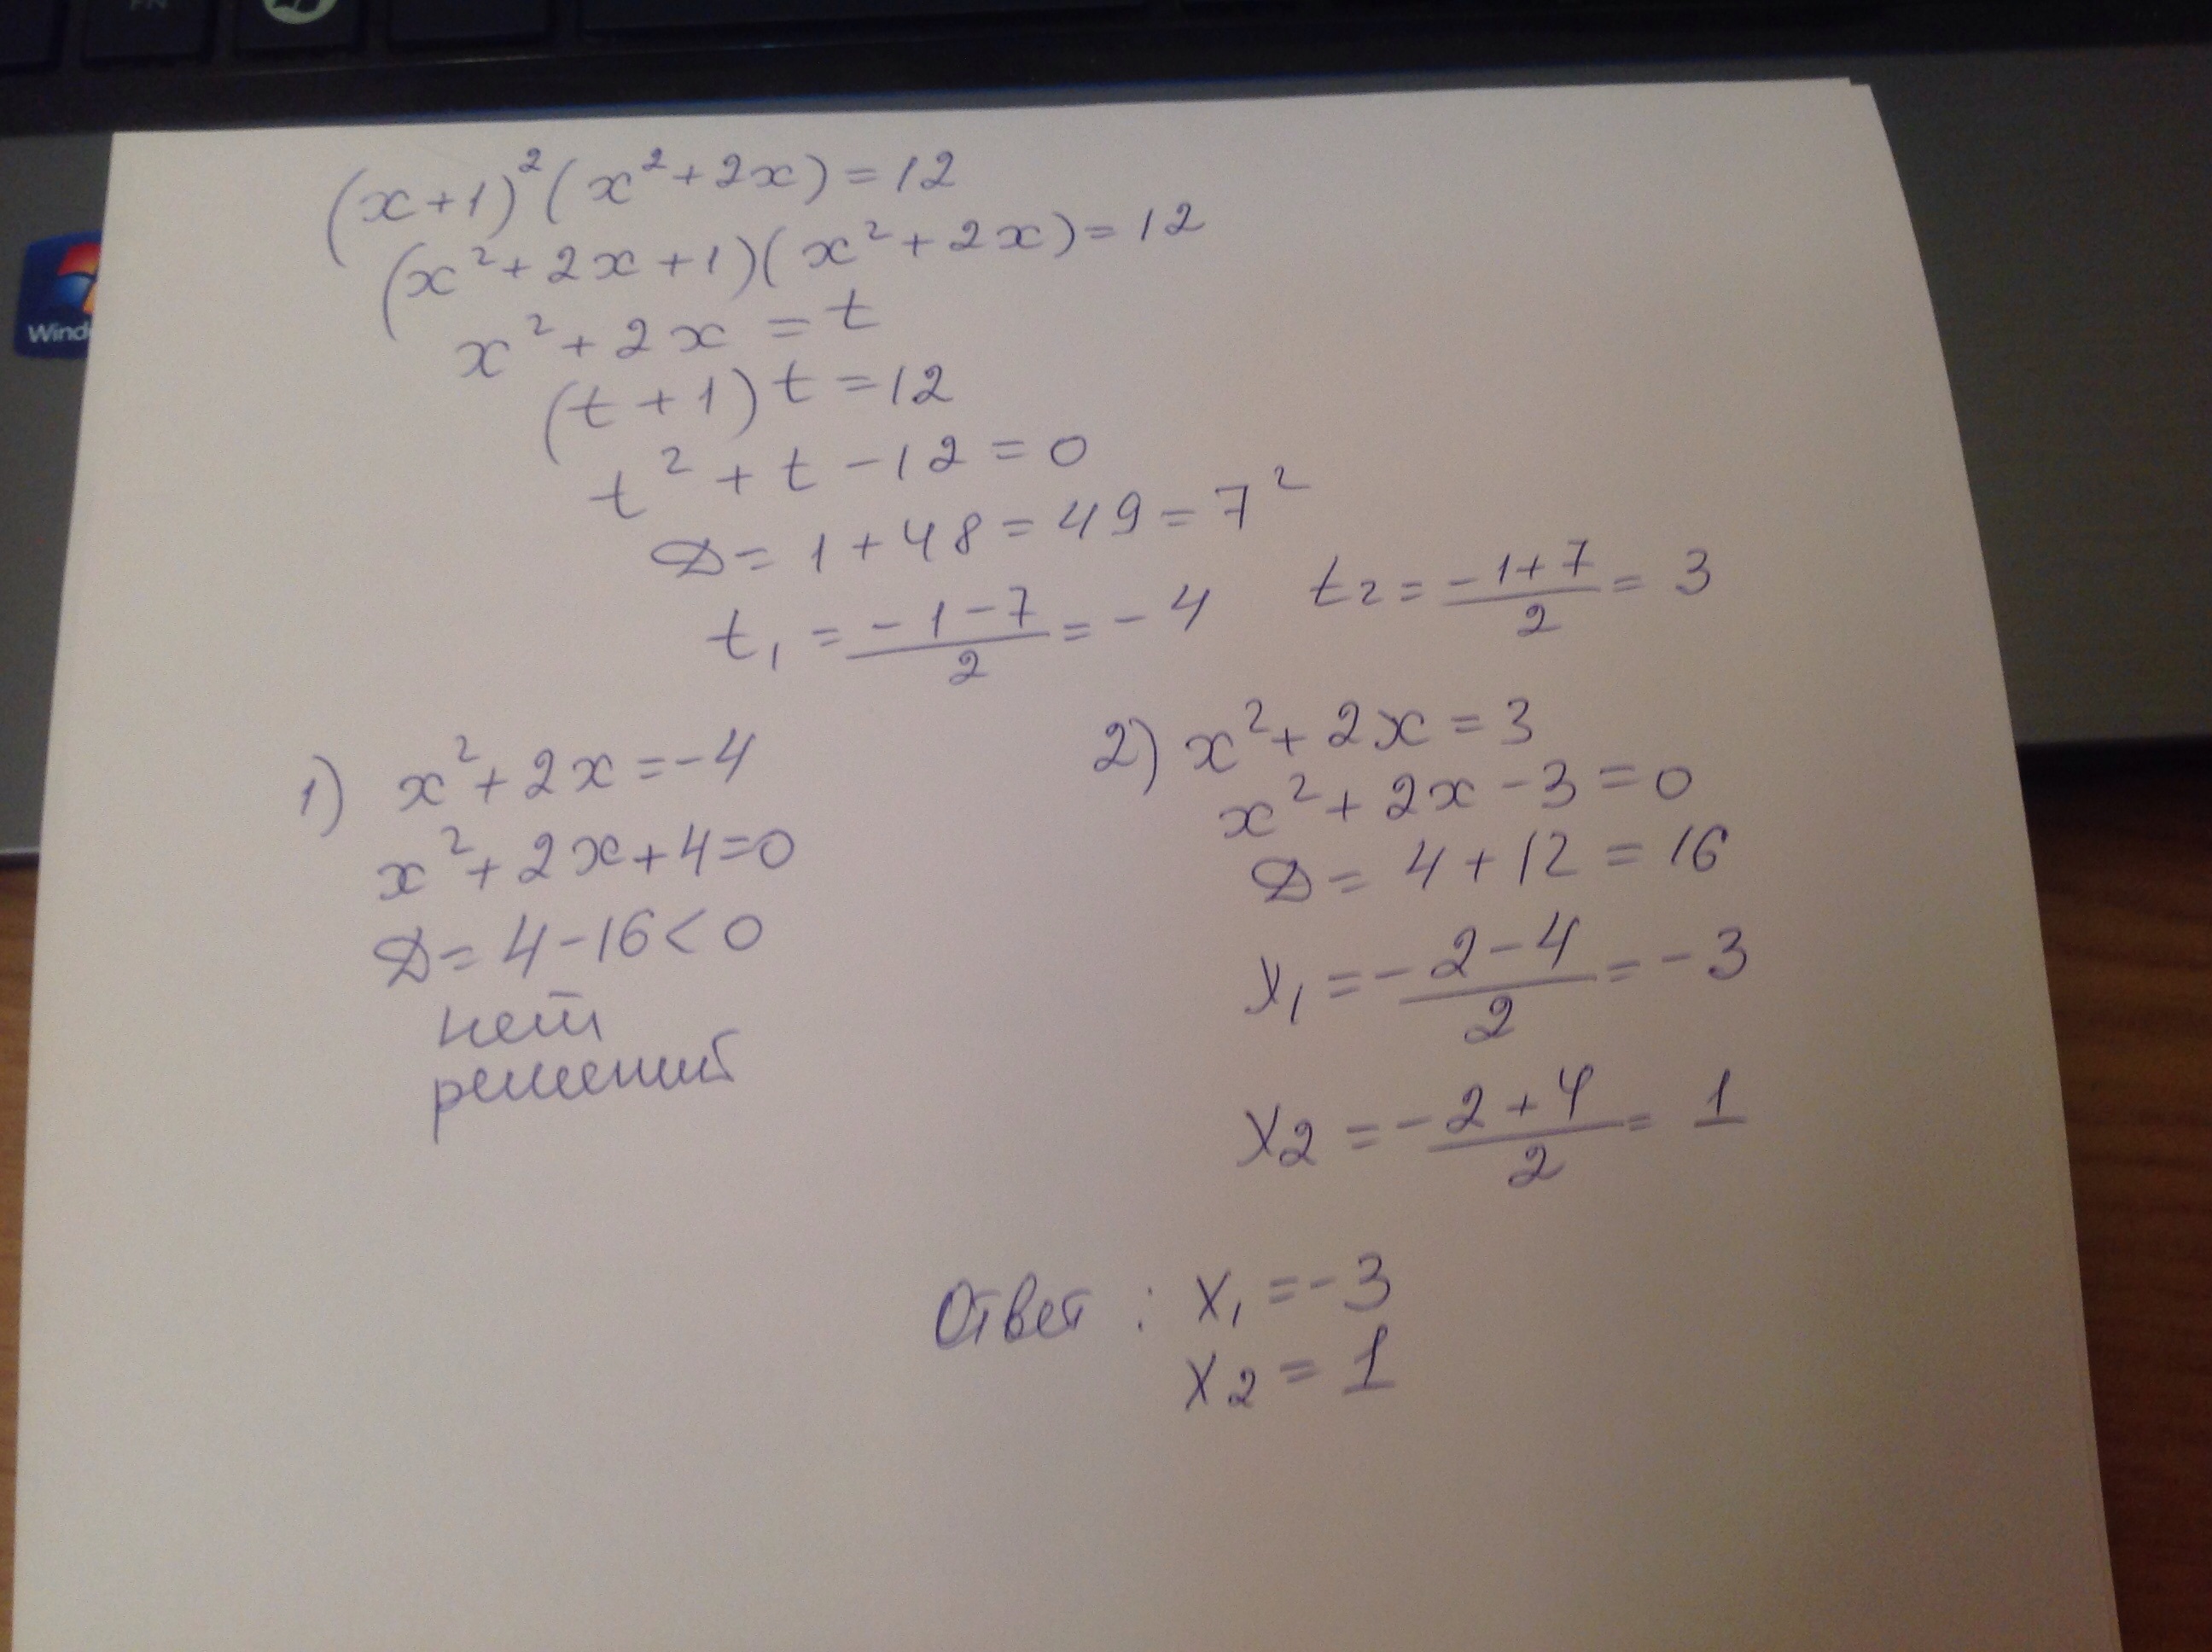 FN
Windo
(x+1)²(x²+2x)=12
(x²+2x+1)(x²+2x)=12
x²+2x=t
(t+1)t=12
t²+t-12=0
D=1+48=49=7²
t₁=(-1-7)/2=-4 t₂=(-1+7)/2=3
1) x²+2x=-4
x²+2x+4=0
D=4-16<0
нет
решений
2) x²+2x=3
x²+2x-3=0
D=4+12=16
x₁=(-2-4)/2=-3
x₂=(-2+4)/2=1
Ответ: x₁=-3
x₂=1